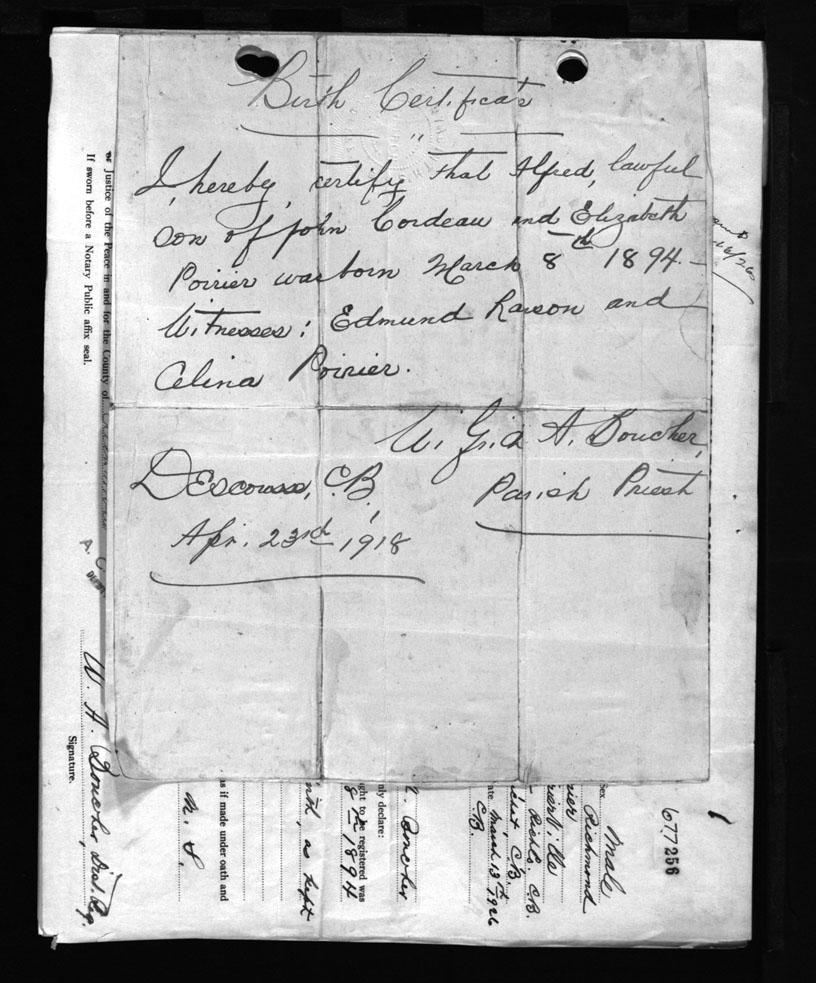 Birth Certificat
"
I, hereby, certify that Alfred, lawful
son of John Cordeau and Elizabeth
Poirier was born March 8th 1894 -
Witnesses: Edmund Rawson and
Celina Poirier.
A. Boucher,
Parish Priest
DEscousse, C.B,
Apr. 23rd 1918
or Justice of the Peace in and for the County of
If sworn before a Notary Public affix seal.
W. A. Boucher, Dist. Reg.
Signature.
677256
Male
Richmond
C.B.
ate March 13th 1926
C.B.
Boucher
nly declare:
ght to be registered was
8th 1894
as kept
as if made under oath and
N. S.